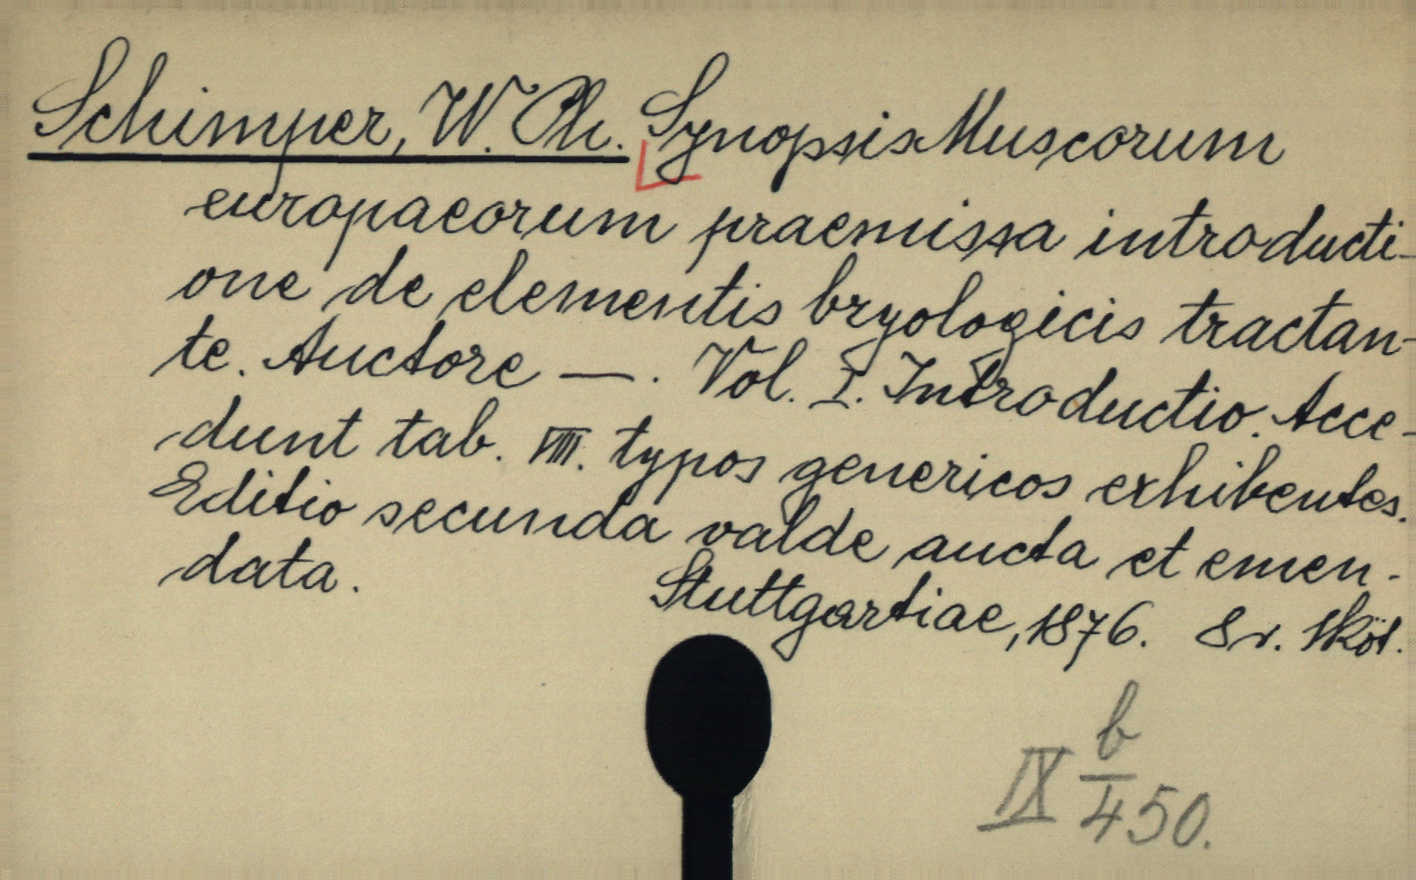 Schimper, W. Ph. Synopsis Muscorum
europaeorum praemissa introducti-
one de elementis bryologicis tractan-
te. Auctore —. Vol. I. Introductio. Acce-
dunt tab. VIII. typos genericos exhibentes.
Editio secunda valde aucta et emen-
data.
Stuttgartiae, 1876. 8r. köt.
b
IX 450.